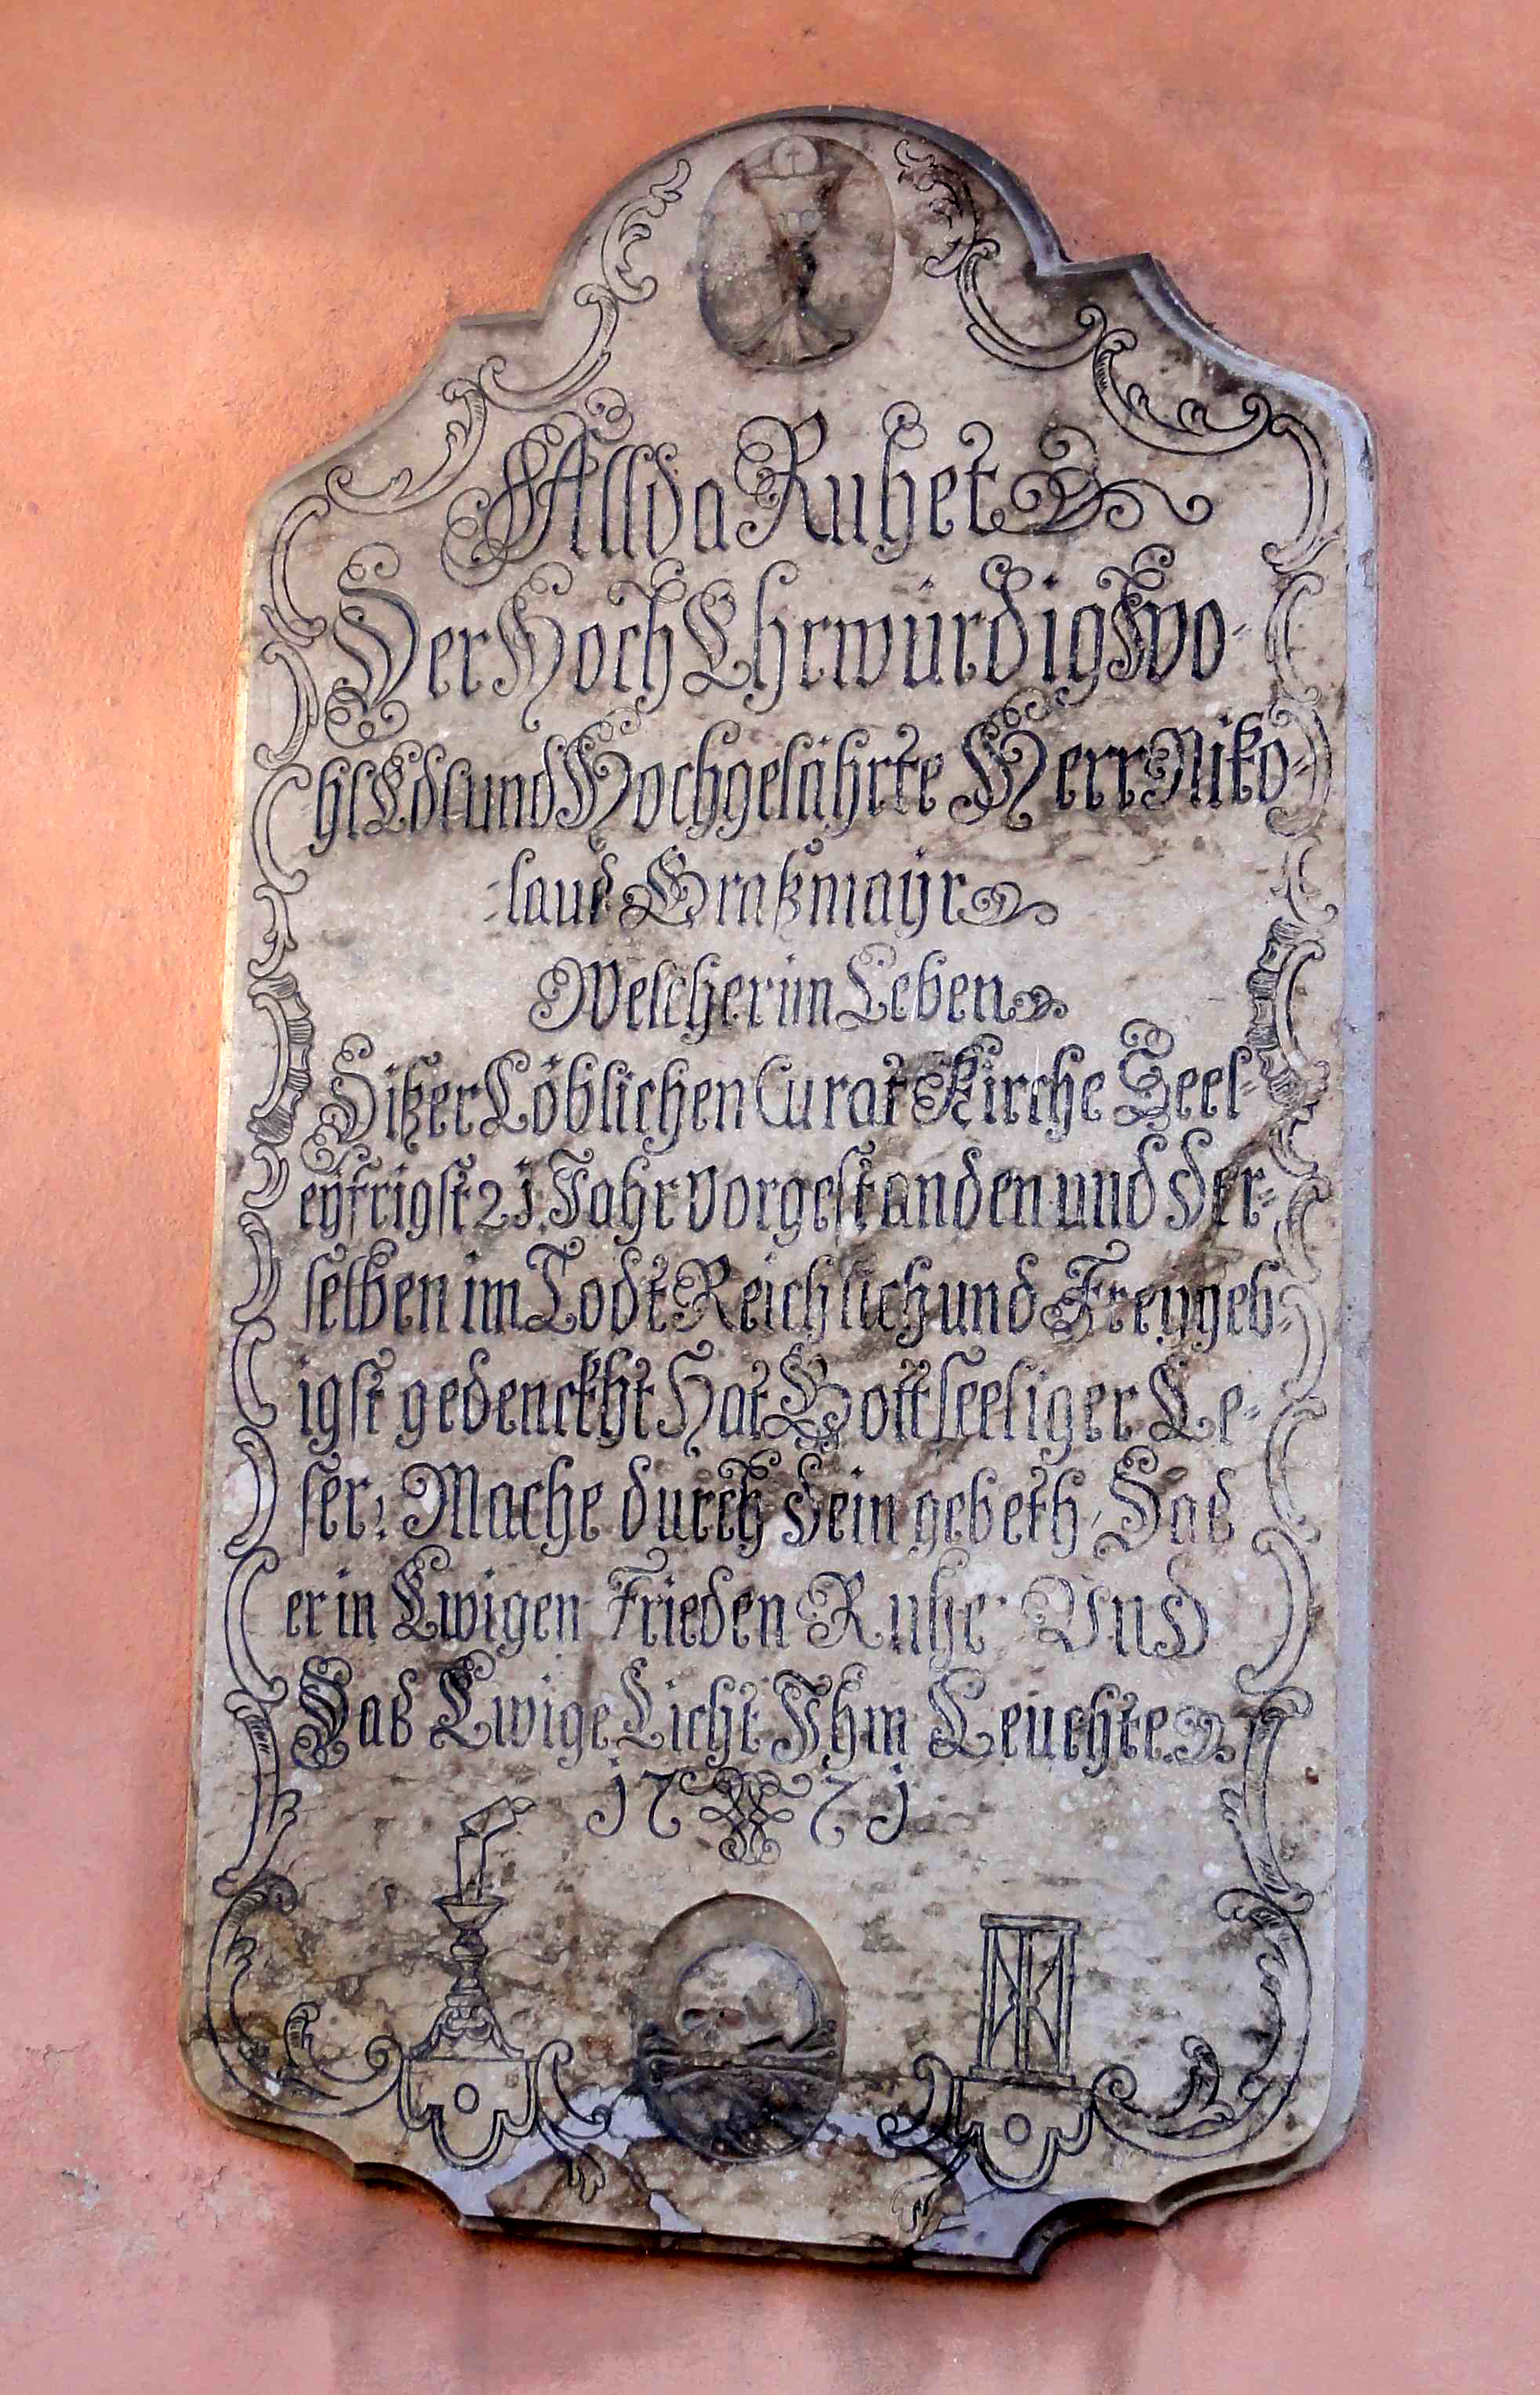 Allda Ruhet
Der Hoch Ehrwürdig Wo-
hl Edl und Hochgelährte Herr Niko-
laus Graßmayr
Welcher im Leben
Dißer Löblichen Curat Kirche Seel-
eyfrigst 21 Jahr vorgestanden und der-
selben im Todt Reichlich und Freygeb-
igst gedenckht Hat Gottseeliger Le-
ser: Mache durch dein gebeth, Das
er in Ewigen Frieden Ruhe. Und
Das Ewige Licht Ihm Leuchte
1771